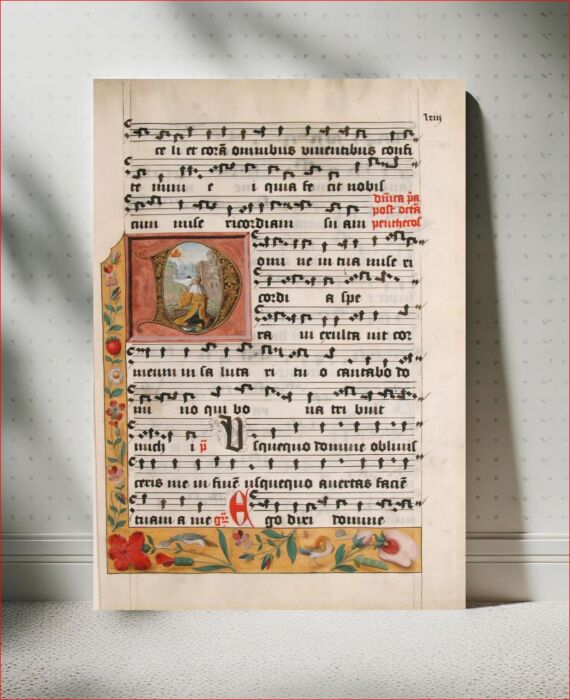 lxiii
te li et corā omnibus viventibus confi
te mini e i quia fe cit nobis
cum mise ricordiam su am
dn̄ica p̄a
post octā
penthecos
Domi ne in tua mise ri
cordi a spe
ra ui exulta uit cor
meum in sa luta ri tu o cantabo do
mi no qui bo na tri buit
mich i p̄
Usquequo domine obliuis
ceris me in finē usquequo auertas faciē
tuam a me gr̄
Ego dixi domine